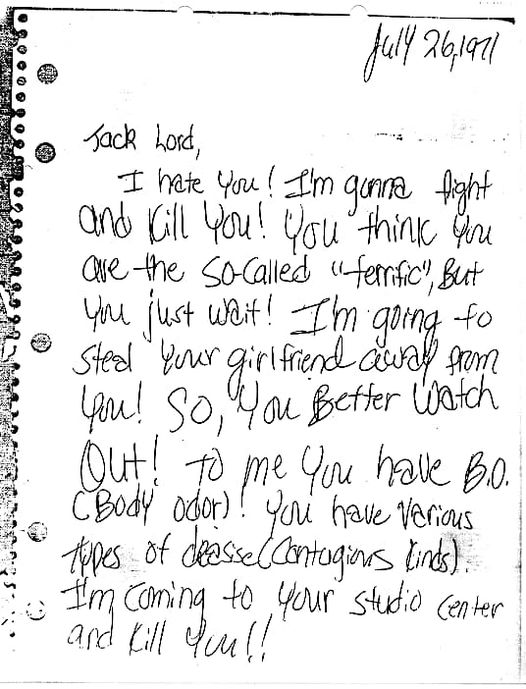 July 26, 1971
Jack Lord,
I hate You! I'm gonna fight
and Kill You! You think You
are the so-called "terrific", But
You just wait! I'm going to
steal Your girlfriend away from
You! So, You Better Watch
Out! To me You have B.O.
(Body odor)! You have various
types of deasse (Contagious kinds).
I'm coming to Your studio center
and Kill You!!